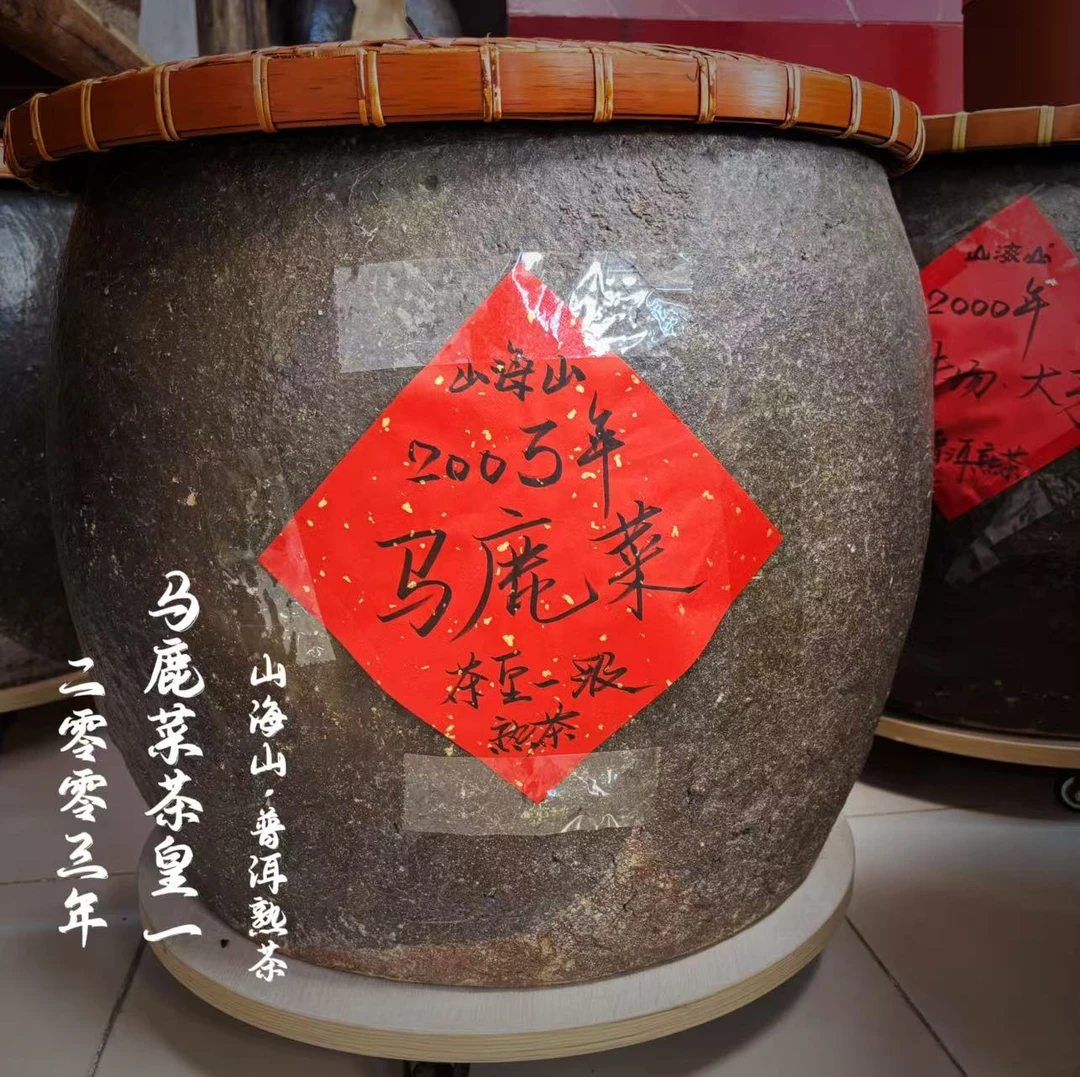 山海山
2003年
马鹿菜
茶皇一级
熟茶
山海山·普洱熟茶
马鹿菜茶皇一
二零零三年
山海山
2000年
勐 大
洱熟茶